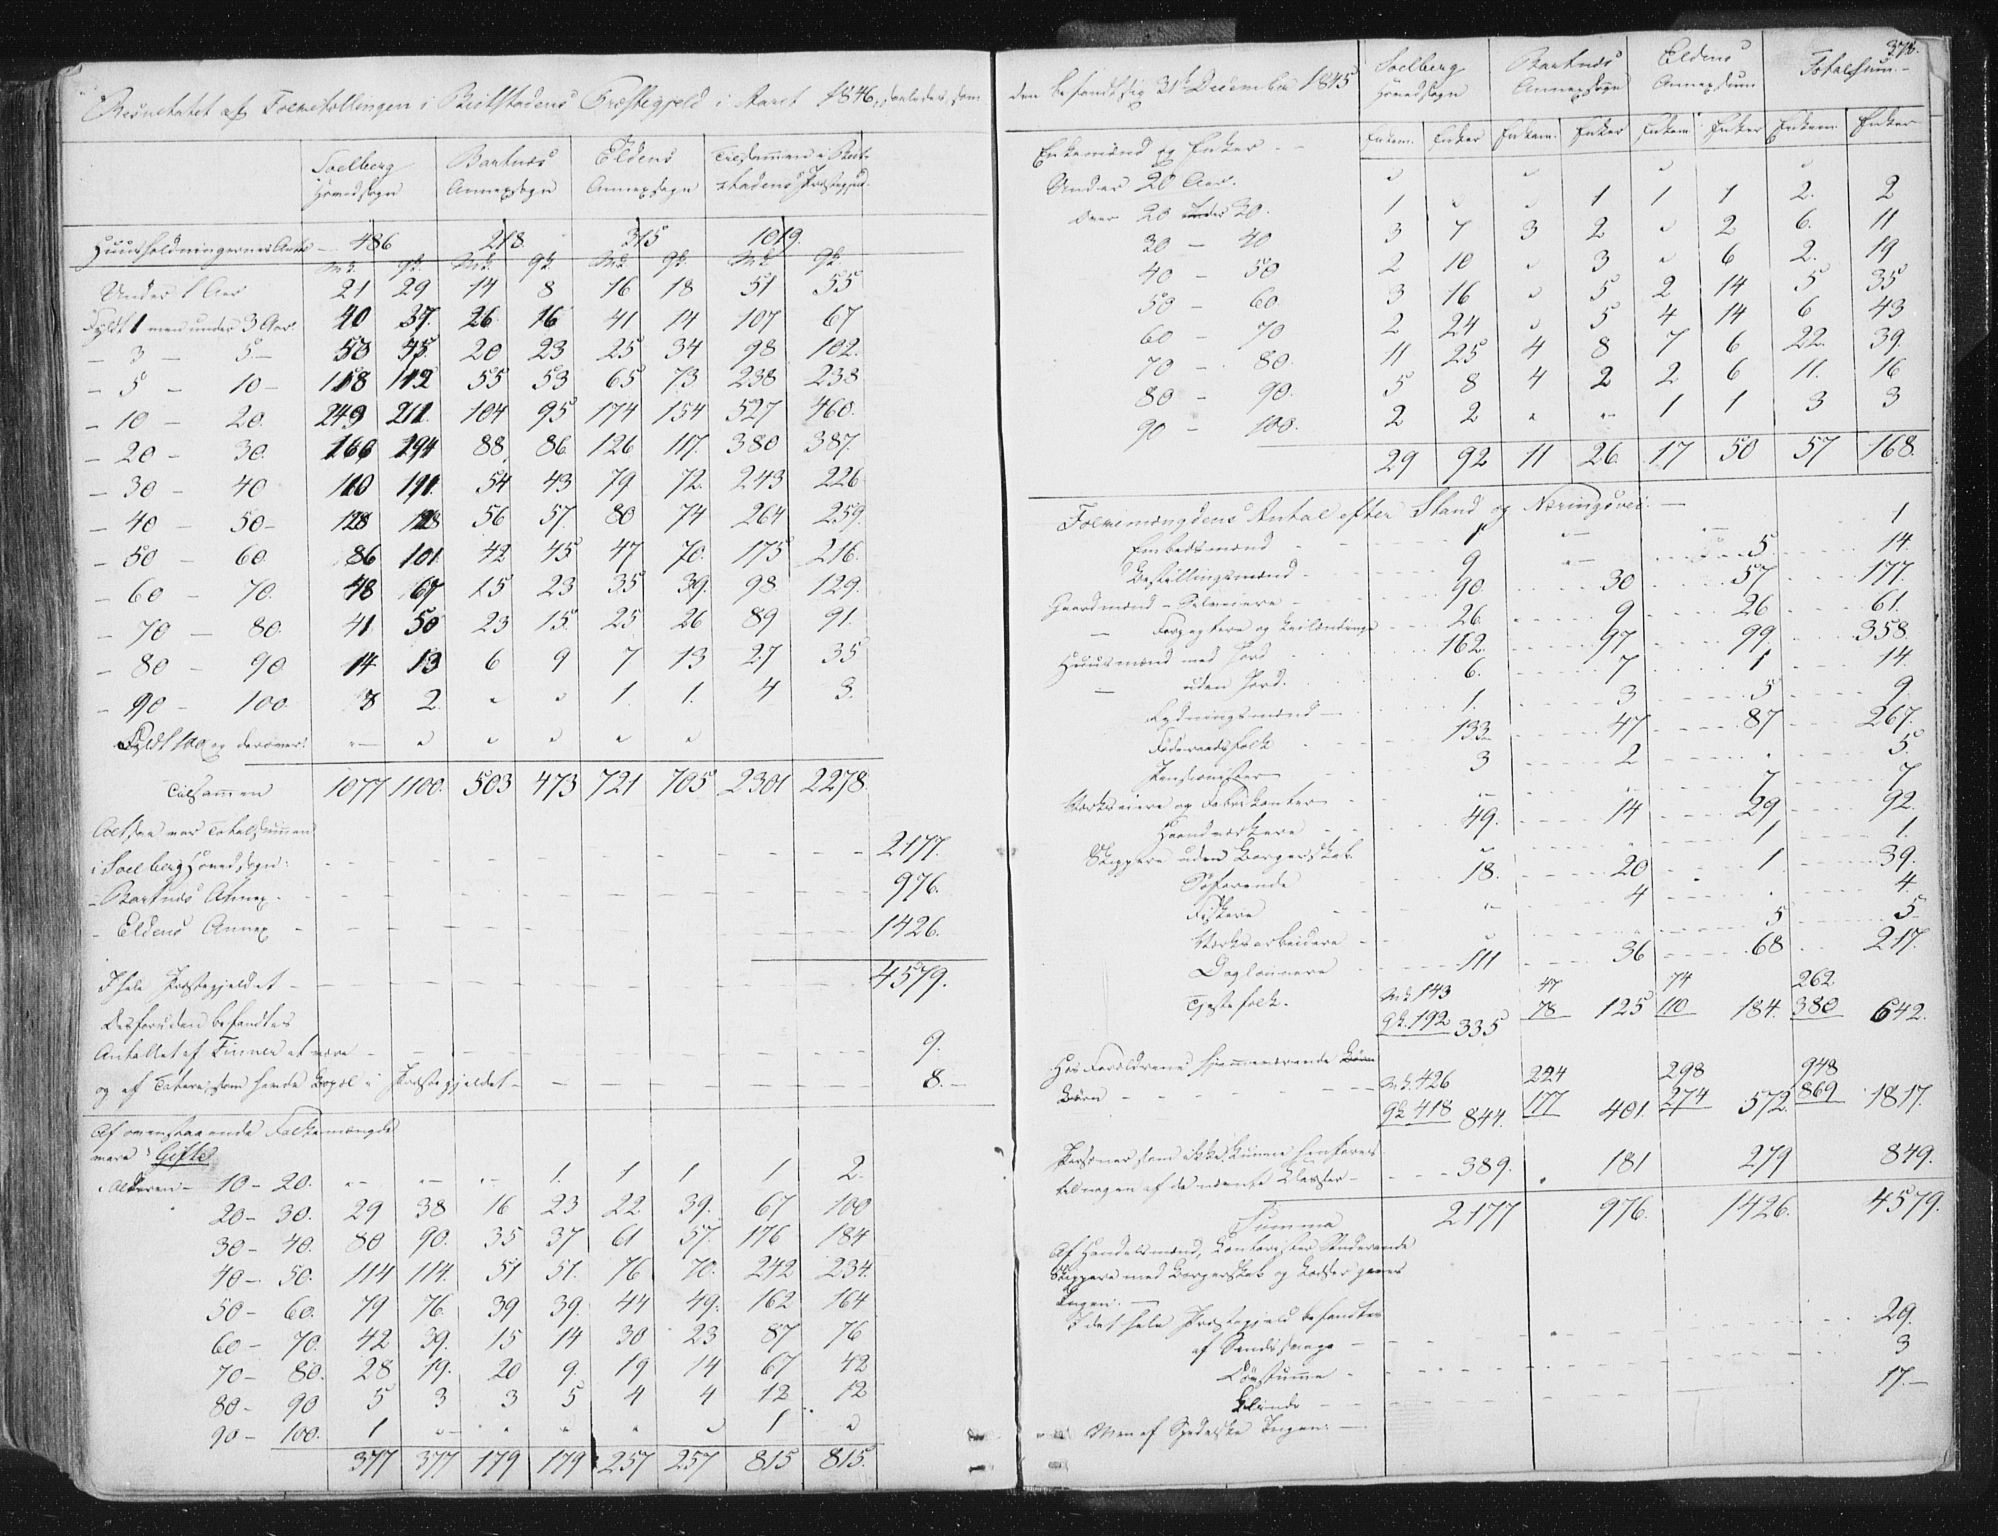 Resultatet af Folketællingen i Beitstadens Præstegjeld i Aaret 1846, saaledes som
Soelberg Hovedsogn Bartnæs Annexsogn Eldens Annexsogn Tilsammen i Beitstadens Præstegjeld.
Huusholdningernes Antal – 486 218. 315 1019.
Mk. Qk. Mk. Qk. Mk. Qk. Mk. Qk.
Under 1 Aar 21 29 14 8 16 18 51 55
Fyldt 1 men under 3 Aar. 40 37. 26 16 41 14 107 67
– 3 – 5.– 53 45 20 23 25 34 98 102.
– 5 – 10– 118 112 55 53 65 73 238 238
– 10 – 20. 249 211 104 95 174 154 527 460.
– 20 – 30. 166 194 88 86 126 117. 380 387.
– 30 – 40 110 111. 54 43 79 72. 243 226
– 40 – 50– 128 128 56 57. 80 74 264 259.
– 50 – 60. 86 101. 42 45 47 70. 175 216.
– 60 – 70. 48 67 15 23 35 39. 98 129.
– 70 – 80. 41 50 23 15. 25 26 89 91.
– 80 – 90. 14 13 6 9 7 13 27 35
– 90 – 100. 3 2 " " 1. 1. 4 3.
Fyldt 100 og derover. " " " " " "
Tilsammen 1077 1100. 503 473 721 705 2301 2278.
Altsaa var Totalsummen
i Soelberg Hovedsogn: 2177.
– Bartnæs Annex – 976.
– Eldens Annex – 1426.
I hele Præstegjeldet – 4579.
Desforuden befandtes
Antallet af Finner at være – 9.
og af Tatere, som havde Bopæl i Præstegjeldet – 8.–
Af ovenstaaende Folkemængde
vare: Gifte
i Alderen – 10 – 20. " " " 1. 1 1 1 2.
20 – 30. 29 38 16 23 22 39. 67 100
30 – 40. 80 90. 35 37 61 57. 176 184
40 – 50. 114 114. 51 51. 76 70. 242 234.
50 – 60. 79 76. 39 39. 44 49. 162 164
60 – 70. 42 39. 15 14 30 23 87 76
70 – 80. 28 19. 20 9. 19 14 67 42
80 – 90 5 3 3 5 4 4 12 12
90 – 100. 1 " " " " " 1 "
377 377 179 179 257 257 815 815.
378.
den befandtes 31te December 1845
Soelberg Hovedsogn Bartnæs Annexsogn Eldens Annexsogn Totalsum.–
Enkem. Enker Enkem. Enker Enkem. Enker Enkem. Enker
Enkemænd og Enker – –
Under 20 Aar. " " " "
Over 20 under 30. 1 " " 1 1 1 2. 2
30 – 40 3 7 3 2 " 2 6. 11
40 – 50 2 10 " 3 " 6 2. 19
50 – 60 3 16 " 5 2 14 5 35
60 – 70 2 24 " 5 4 14 6 43
70 – 80. 11 25 4 8 7 6 22. 39.
80 – 90. 5 8 4 2 2 6 11. 16
90 – 100. 2 2 " " 1 1 3 3
29 92 11 26. 17 50 57 168.
Folkemængdens Antal efter Stand og Næringsvei. –
Embedsmænd 1 " " 1
Bestillingsmænd – 9 " 5 14.
Gaardmænd – Selveiere – 90. 30 57 177.
– Forpagtere og Leilændinge 26. 9 26 61.
Huusmænd med Jord 162. 97 99 358.
– uden Jord. 6. 7 1 14.
Rydningsmænd – 1. 3 5 9.
Føderaadsfolk 133 47 87 267.
Pensionister 3 2 " 5.
Værkseiere og Fabrikanter " " 7 7
Haandværkere 49. 14 29 92.
Skippere uden Borgerskab. " " 1 1.
Søfarende 18. 20 1 39.
Fiskere " 4 " 4
Værksarbeidere – " " 5 5
Daglønnere 111 36 68 217.
Tjenestefolk. Mk. 143 47 74 262
Qk. 192 335 78 125 110 184. 380 642.
Hos Forældrene hjemmeværende Børn
Børn – Mk. 426 224 298 948
Qk. 418 844. 177 401. 274 572. 869 1817.
Personer, som ikke kunne henføres
til nogen af de nævnte Klasser – 389. 181 279 849.
Summa 2177 976. 1426. 4579.
Af Handelsmænd, Kontorister, Studerende
Skippere med Borgerskab og Lodser gaves
Ingen. –
I det hele Præstegjeld befandtes
af Sindssvage – 29.
Døvstumme – 3
Blinde – 17.–
– Men af Spedalske Ingen. –